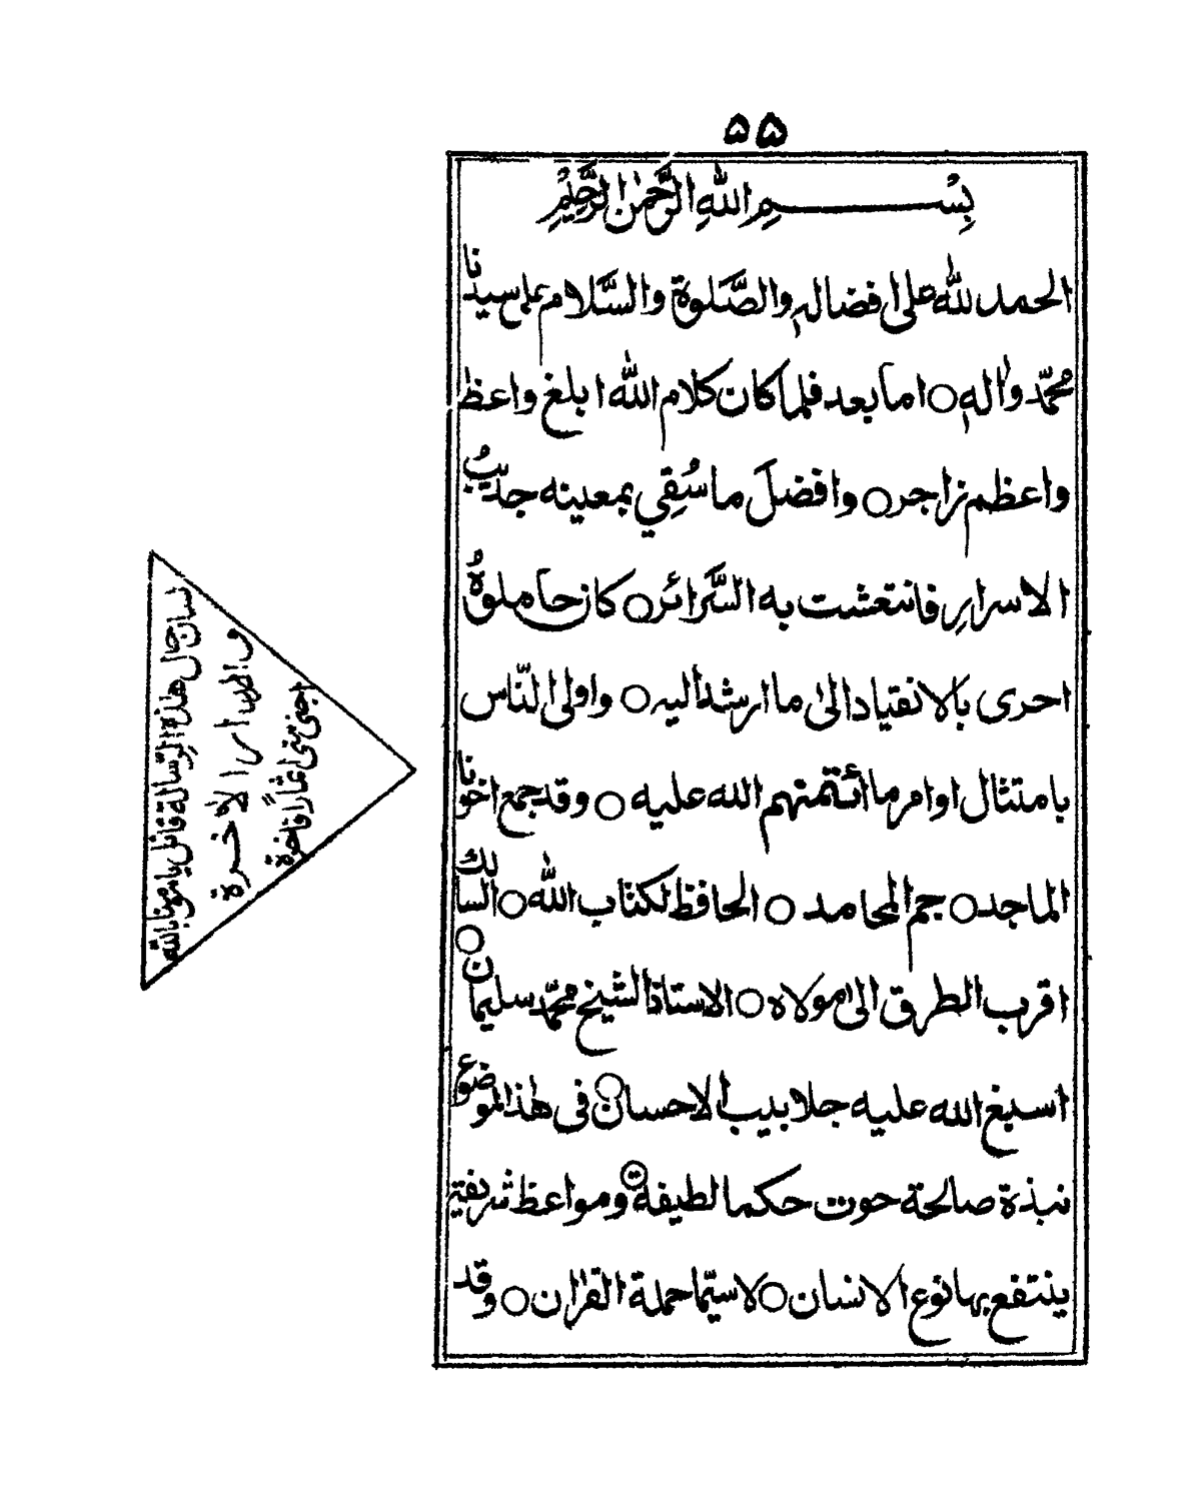 ۵۵
بِسْمِ اللهِ الرَّحْمٰنِ الرَّحِيْمِ
الحمد لله على افضالهٖ والصَّلوة والسَّلام على سيدنا
محمّد واٰلهٖ ○ اما بعد فلما كان كلام الله ابلغ واعظ
واعظم زاجر ○ وافضلَ ما سُقِي بمعينه جديبُ
الاسرارِ فانتعشت به السَّرائر ○ كان حاملوهُ
احرى بالانقياد الىٰ ما ارشد اليه ○ واولى النّاس
بامتثال اوامر ما ائتمنهم الله عليه ○ وقد جمع اخونا
الماجد ○ جم المحامد ○ الحافظ لكتاب الله ○ السالك
اقرب الطرق الىٰ مولاه ○ الاستاذ الشيخ محمّد سليمان ○
اسبغ الله عليه جلابيب الاحسان ○ فى هٰذا الموضوع
نبذة صالحة حوت حكما لطيفة ○ ومواعظ شريفة
ينتفع بها نوع الانسان ○ لا سيّما حملة القراٰن ○ وقد
لسان حال هذه الرّسالة قائل يا مؤمنا بالله
والدار الاخرة
اجنى منى ثمارًا فاخرة